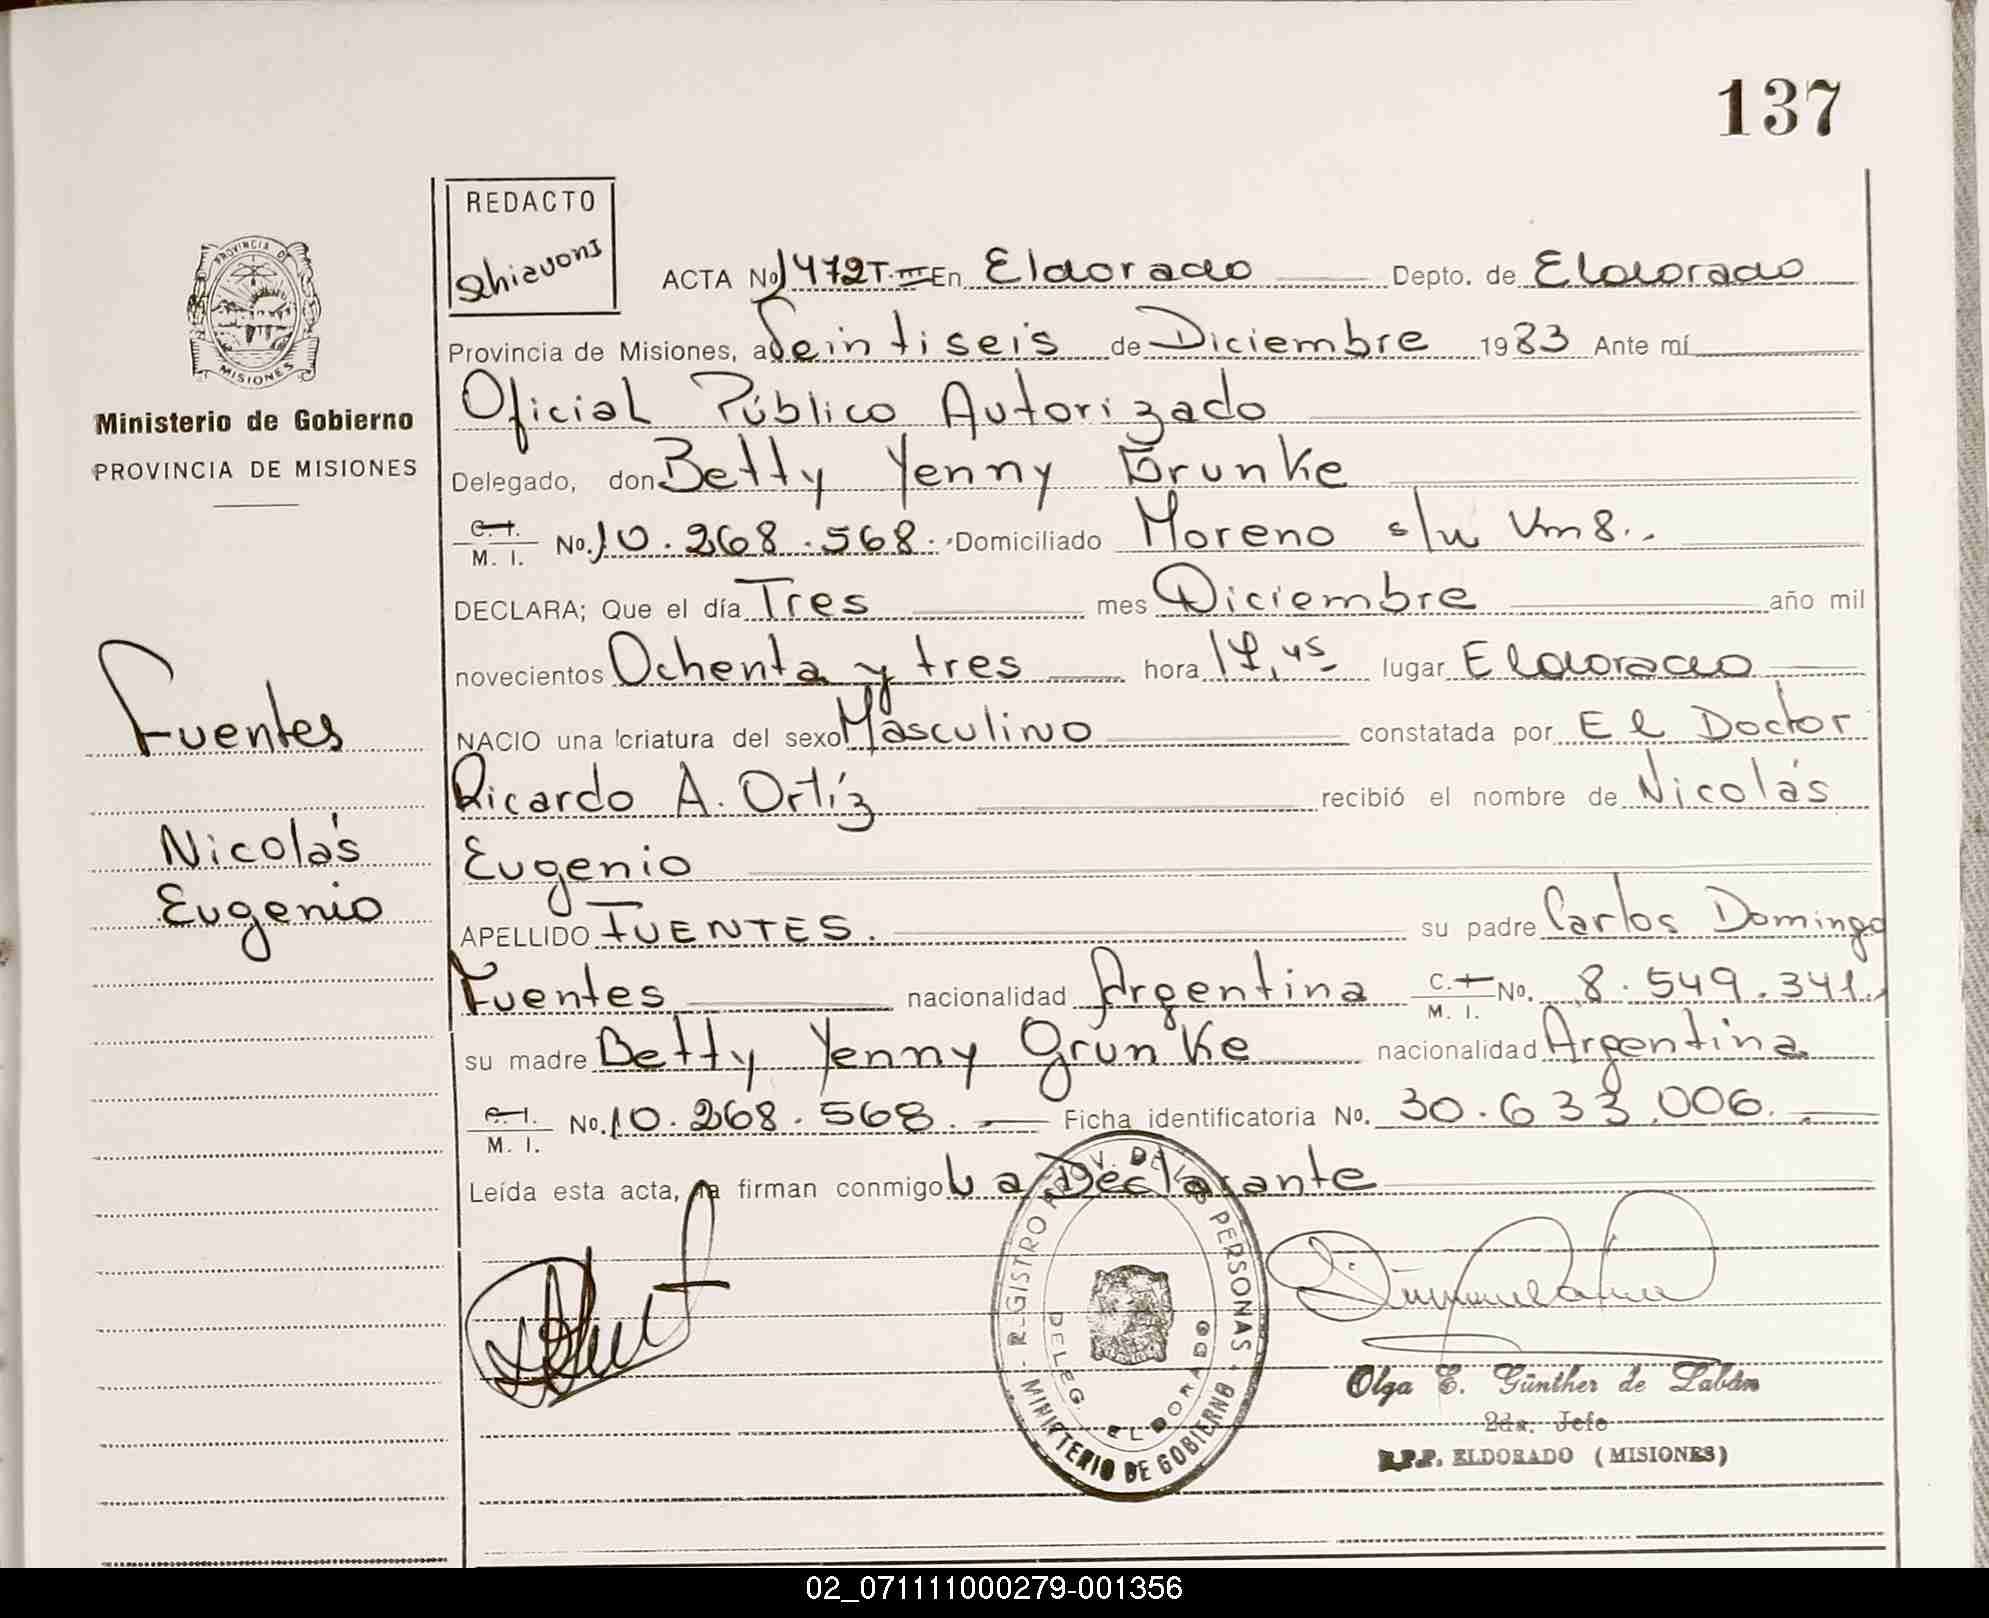 137
REDACTO
Schiavoni
PROVINCIA DE
MISIONES
Ministerio de Gobierno
PROVINCIA DE MISIONES
Fuentes
Nicolás
Eugenio
ACTA No 1472 T. III En Eldorado Depto. de Eldorado
Provincia de Misiones, a Veintiseis de Diciembre 1983 Ante mí
Oficial Público Autorizado
Delegado, don Betty Yenny Grunke
C. I. M. I. No. 10.268.568. Domiciliado Moreno s/n Km 8.
DECLARA; Que el día Tres mes Diciembre año mil
novecientos Ochenta y tres hora 17,45 lugar Eldorado
NACIO una criatura del sexo Masculino constatada por El Doctor
Ricardo A. Ortíz recibió el nombre de Nicolás
Eugenio
APELLIDO FUENTES. su padre Carlos Domingo
Fuentes nacionalidad Argentina C. I. M. I. No. 8.549.341.
su madre Betty Yenny Grunke nacionalidad Argentina
C. I. M. I. No. 10.268.568. Ficha identificatoria No. 30.633.006.
Leída esta acta, la firman conmigo La Declarante
REGISTRO PROV. DE LAS PERSONAS
MINISTERIO DE GOBIERNO
DELEG. ELDORADO
Olga E. Günther de Labán
2da. Jefe
R.P.P. ELDORADO (MISIONES)
02_071111000279-001356